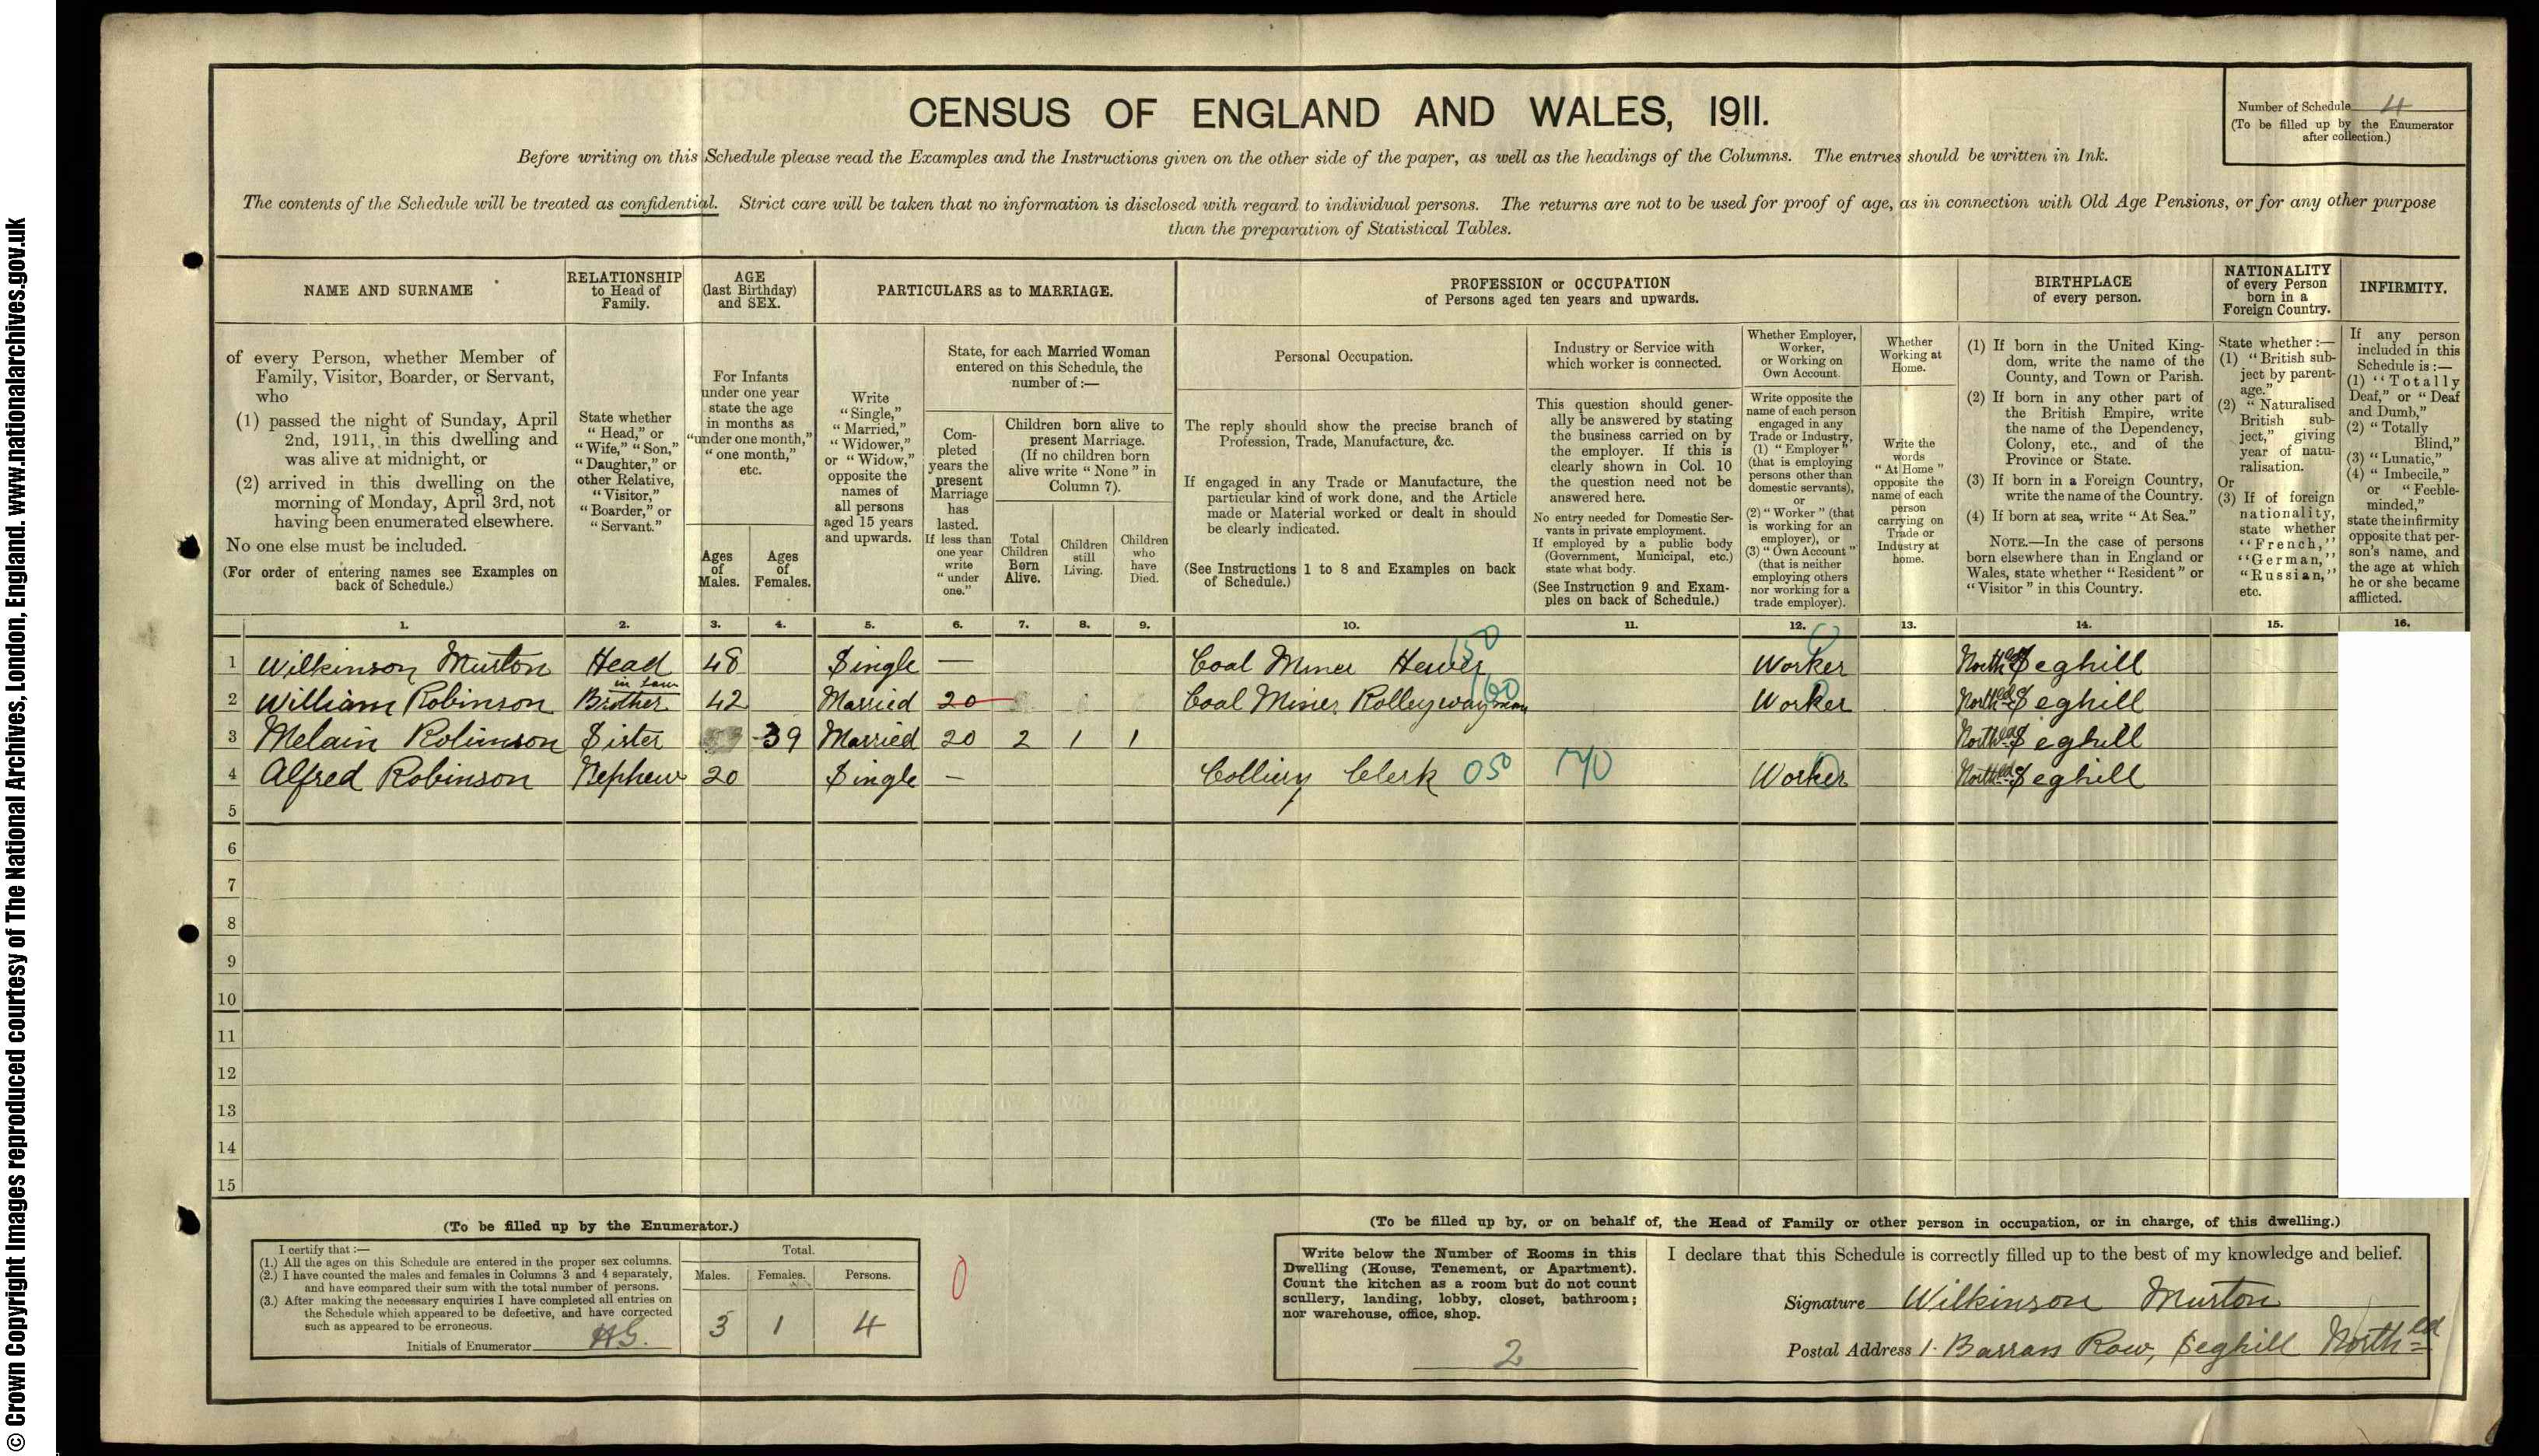 © Crown Copyright Images reproduced courtesy of The National Archives, London, England. www.nationalarchives.gov.uk
CENSUS OF ENGLAND AND WALES, 1911.
Number of Schedule 4
(To be filled up by the Enumerator
after collection.)
Before writing on this Schedule please read the Examples and the Instructions given on the other side of the paper, as well as the headings of the Columns. The entries should be written in Ink.
The contents of the Schedule will be treated as confidential. Strict care will be taken that no information is disclosed with regard to individual persons. The returns are not to be used for proof of age, as in connection with Old Age Pensions, or for any other purpose
than the preparation of Statistical Tables.
NAME AND SURNAME
of every Person, whether Member of
Family, Visitor, Boarder, or Servant,
who
(1) passed the night of Sunday, April
2nd, 1911, in this dwelling and
was alive at midnight, or
(2) arrived in this dwelling on the
morning of Monday, April 3rd, not
having been enumerated elsewhere.
No one else must be included.
(For order of entering names see Examples on
back of Schedule.)
RELATIONSHIP
to Head of
Family.
State whether
"Head," or
"Wife," "Son,"
"Daughter," or
other Relative,
"Visitor,"
"Boarder," or
"Servant."
AGE
(last Birthday)
and SEX.
For Infants
under one year
state the age
in months as
"under one month,"
"one month,"
etc.
Ages
of
Males.
Ages
of
Females.
PARTICULARS as to MARRIAGE.
Write
"Single,"
"Married,"
"Widower,"
or "Widow,"
opposite the
names of
all persons
aged 15 years
and upwards.
State, for each Married Woman
entered on this Schedule, the
number of :—
Com-
pleted
years the
present
Marriage
has
lasted.
If less than
one year
write
"under
one."
Children born alive to
present Marriage.
(If no children born
alive write "None" in
Column 7).
Total
Children
Born
Alive.
Children
still
Living.
Children
who
have
Died.
PROFESSION or OCCUPATION
of Persons aged ten years and upwards.
Personal Occupation.
The reply should show the precise branch of
Profession, Trade, Manufacture, &c.
If engaged in any Trade or Manufacture, the
particular kind of work done, and the Article
made or Material worked or dealt in should
be clearly indicated.
(See Instructions 1 to 8 and Examples on back
of Schedule.)
Industry or Service with
which worker is connected.
This question should gener-
ally be answered by stating
the business carried on by
the employer. If this is
clearly shown in Col. 10
the question need not be
answered here.
No entry needed for Domestic Ser-
vants in private employment.
If employed by a public body
(Government, Municipal, etc.)
state what body.
(See Instruction 9 and Exam-
ples on back of Schedule.)
Whether Employer,
Worker,
or Working on
Own Account.
Write opposite the
name of each person
engaged in any
Trade or Industry,
(1) "Employer"
(that is employing
persons other than
domestic servants),
or
(2) "Worker" (that
is working for an
employer), or
(3) "Own Account"
(that is neither
employing others
nor working for a
trade employer).
Whether
Working at
Home.
Write the
words
"At Home"
opposite the
name of each
person
carrying on
Trade or
Industry at
home.
BIRTHPLACE
of every person.
(1) If born in the United King-
dom, write the name of the
County, and Town or Parish.
(2) If born in any other part of
the British Empire, write
the name of the Dependency,
Colony, etc., and of the
Province or State.
(3) If born in a Foreign Country,
write the name of the Country.
(4) If born at sea, write "At Sea."
NOTE.—In the case of persons
born elsewhere than in England or
Wales, state whether "Resident" or
"Visitor" in this Country.
NATIONALITY
of every Person
born in a
Foreign Country.
State whether :—
(1) "British sub-
ject by parent-
age."
(2) "Naturalised
British sub-
ject," giving
year of natu-
ralisation.
Or
(3) If of foreign
nationality,
state whether
"French,"
"German,"
"Russian,"
etc.
INFIRMITY.
If any person
included in this
Schedule is :—
(1) "Totally
Deaf," or "Deaf
and Dumb,"
(2) "Totally
Blind,"
(3) "Lunatic,"
(4) "Imbecile,"
or "Feeble-
minded,"
state the infirmity
opposite that per-
son's name, and
the age at which
he or she became
afflicted.
1. 2. 3. 4. 5. 6. 7. 8. 9. 10. 11. 12. 13. 14. 15. 16.
1 Wilkinson Murton Head 48 Single — Coal Miner Hewer 150 Worker North'd Seghill
2 William Robinson Brother in Law 42 Married 20 Coal Miner Rolleywayman 160 Worker North'd Seghill
3 Melain Robinson Sister 39 Married 20 2 1 1 North'd Seghill
4 Alfred Robinson Nephew 20 Single — Colliery Clerk 050 140 Worker North'd Seghill
5
6
7
8
9
10
11
12
13
14
15
(To be filled up by the Enumerator.)
I certify that :—
(1.) All the ages on this Schedule are entered in the proper sex columns.
(2.) I have counted the males and females in Columns 3 and 4 separately,
and have compared their sum with the total number of persons.
(3.) After making the necessary enquiries I have completed all entries on
the Schedule which appeared to be defective, and have corrected
such as appeared to be erroneous.
Initials of Enumerator HG.
Total.
Males. Females. Persons.
3 1 4
0
(To be filled up by, or on behalf of, the Head of Family or other person in occupation, or in charge, of this dwelling.)
Write below the Number of Rooms in this
Dwelling (House, Tenement, or Apartment).
Count the kitchen as a room but do not count
scullery, landing, lobby, closet, bathroom;
nor warehouse, office, shop.
2
I declare that this Schedule is correctly filled up to the best of my knowledge and belief.
Signature Wilkinson Murton
Postal Address 1. Barrass Row, Seghill North'ld